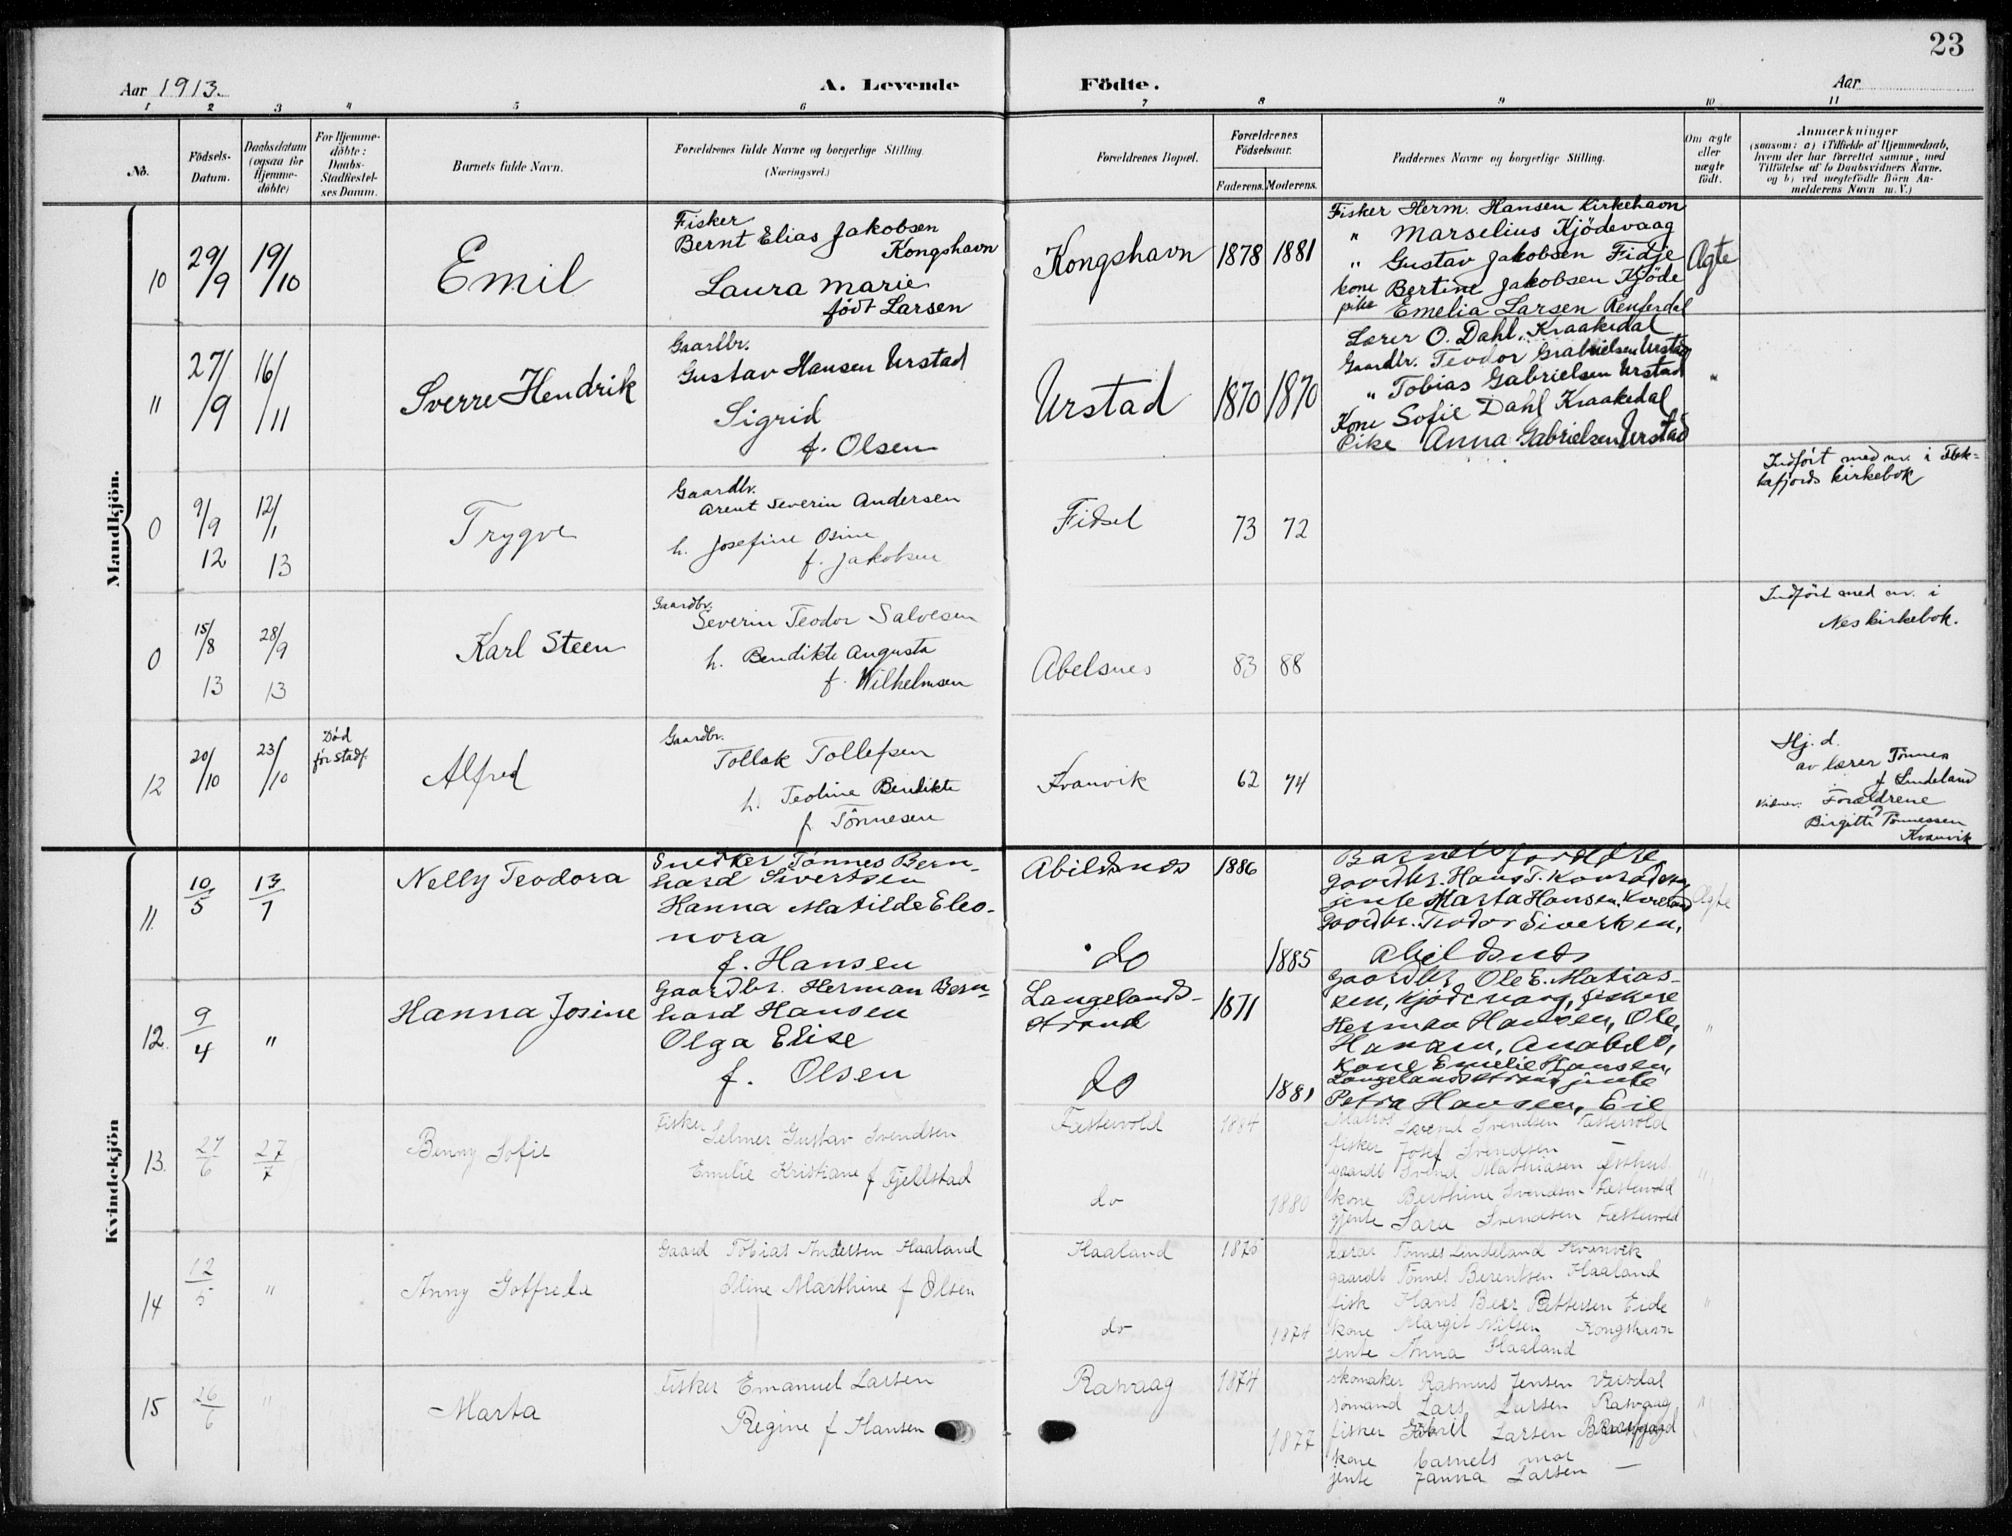 23
Aar 1913. A. Levende Födte. Aar
1 2 3 4 5 6 7 8 9 10 11
No.
Födsels-
Datum.
Daabsdatum
(ogsaa for
Hjemme-
döbte)
For Hjemme-
döbte:
Daabs-
Stadfæstel-
ses Datum.
Barnets fulde Navn.
Forældrenes fulde Navne og borgerlige Stilling.
(Næringsvei.)
Forældrenes Bopæl.
Forældrenes
Födselsaar.
Faderens. Moderens.
Faddernes Navne og borgerlige Stilling.
Om ægte
eller
uægte
født.
Anmærkninger
(saasom: a) i Tilfælde af Hjemmedaab,
hvem der har forrettet samme, med
Tilföielse af to Daabsvidners Navne.
og b) ved uægtefödte Börn An-
melderens Navn m. V.)
Mandkjön.
10 29/9 19/10 Emil
Fisker
Bernt Elias Jakobsen
Kongshavn
Laura Marie
født Larsen
Kongshavn 1878 1881
Fisker Herm. Hansen Kirkehavn
" Marselius Kjödevaag
" Gustav Jakobsen Fidje
kone Bertine Jakobsen Kjöde
pike Emelia Larsen
Ægte
11 27/9 16/11 Sverre Hendrik
Gaardbr.
Gustav Hansen Urstad
Sigrid
f. Olsen
Urstad 1870 1870
Lærer O. Dahl, Kraakedal
Gaardbr. Teodor Gabrielsen Urstad
" Tobias Gabrielsen Urstad
Kone Sofie Dahl Kraakedal
Pike Anna Gabrielsen Urstad
"
0 9/9 12 12/1 13 Trygve
Gaardbr.
Arent Severin Andersen
h. Josefine Osine
f. Jakobsen
Fidsel 73 72
Indført med nr. i Flek-
kefjords kirkebok
0 15/8 13 28/9 13 Karl Steen
Gaardbr.
Severin Teodor Salvesen
h. Bendikte Augusta
f. Wilhelmsen
Abelsnes 83 88
Indført med nr. i
Nes kirkebok.
12 20/10 23/10
Død
før stadf.
Alfred
Gaardbr.
Tollak Tollefsen
h. Teoline Bendikte
f Tönnesen
Kvanvik 62 74
Hj. d.
av lærer Tönnes
f Lindeland
Vidner: Forældrene
Birgitte Tönnessen
Kvanvik
Kvindekjön
11. 10/5 13/7 Nelly Teodora
Snedker Tønnes Bern-
hard Sivertsen
Hanna Matilde Eleo-
nora
f. Hansen
Abildsnes 1886
do 1885
Barnets forældre
gaardbr. Hans T.
jente Marta Hansen,
gaardbr. Teodor Sivertsen,
Abildsnes
Ægte
12. 9/4 " Hanna Josine
Gaardbr. Herman Bern-
hard Hansen
Olga Elise
f. Olsen
Langelands-
strand 1871
do 1881
gaardbr. Ole E. Matias-
sen, Kjödevaag, fiskere
Herman Hansen, Ole
Hansen,
kone Emelie Hansen,
Langelandsstrand, jente
Petra Hansen, Eie
"
13. 27/6 27/7 Benny Sofie
Fisker Selmer Gustav Svendsen
Emelie Kristiane f Fjellstad
Fæstevold 1884
do 1880
Matros Svend Svendsen Fæstevold
fisker Josef Svendsen —
gaardb Svend Mathiasen
kone Berthine Svendsen Fæstevold
gjente Sara Svendsen Fæstevold
"
14 12/5 " Anny Gotfreda
Gaard Tobias Andersen Haaland
Oline Marthine f Olsen
Haaland 1875
do 1874
lærer Tønnes Lindeland Kvanvik
gaardb Tønnes Berentsen Haaland
fisk Hans Beer Pettersen Eide
kone Margit Nilsen Kongshavn
jente Anna Haaland
"
15 26/6 " Marta
Fisker Emanuel Larsen
Regine f Hansen
Rasvaag 1874
1877
skomaker Rasmus Jensen
sømand Lars Larsen Rasvaag
fisker Gabriel Larsen Rasvaag
kone barnets mor
jente Janna Larsen —
"